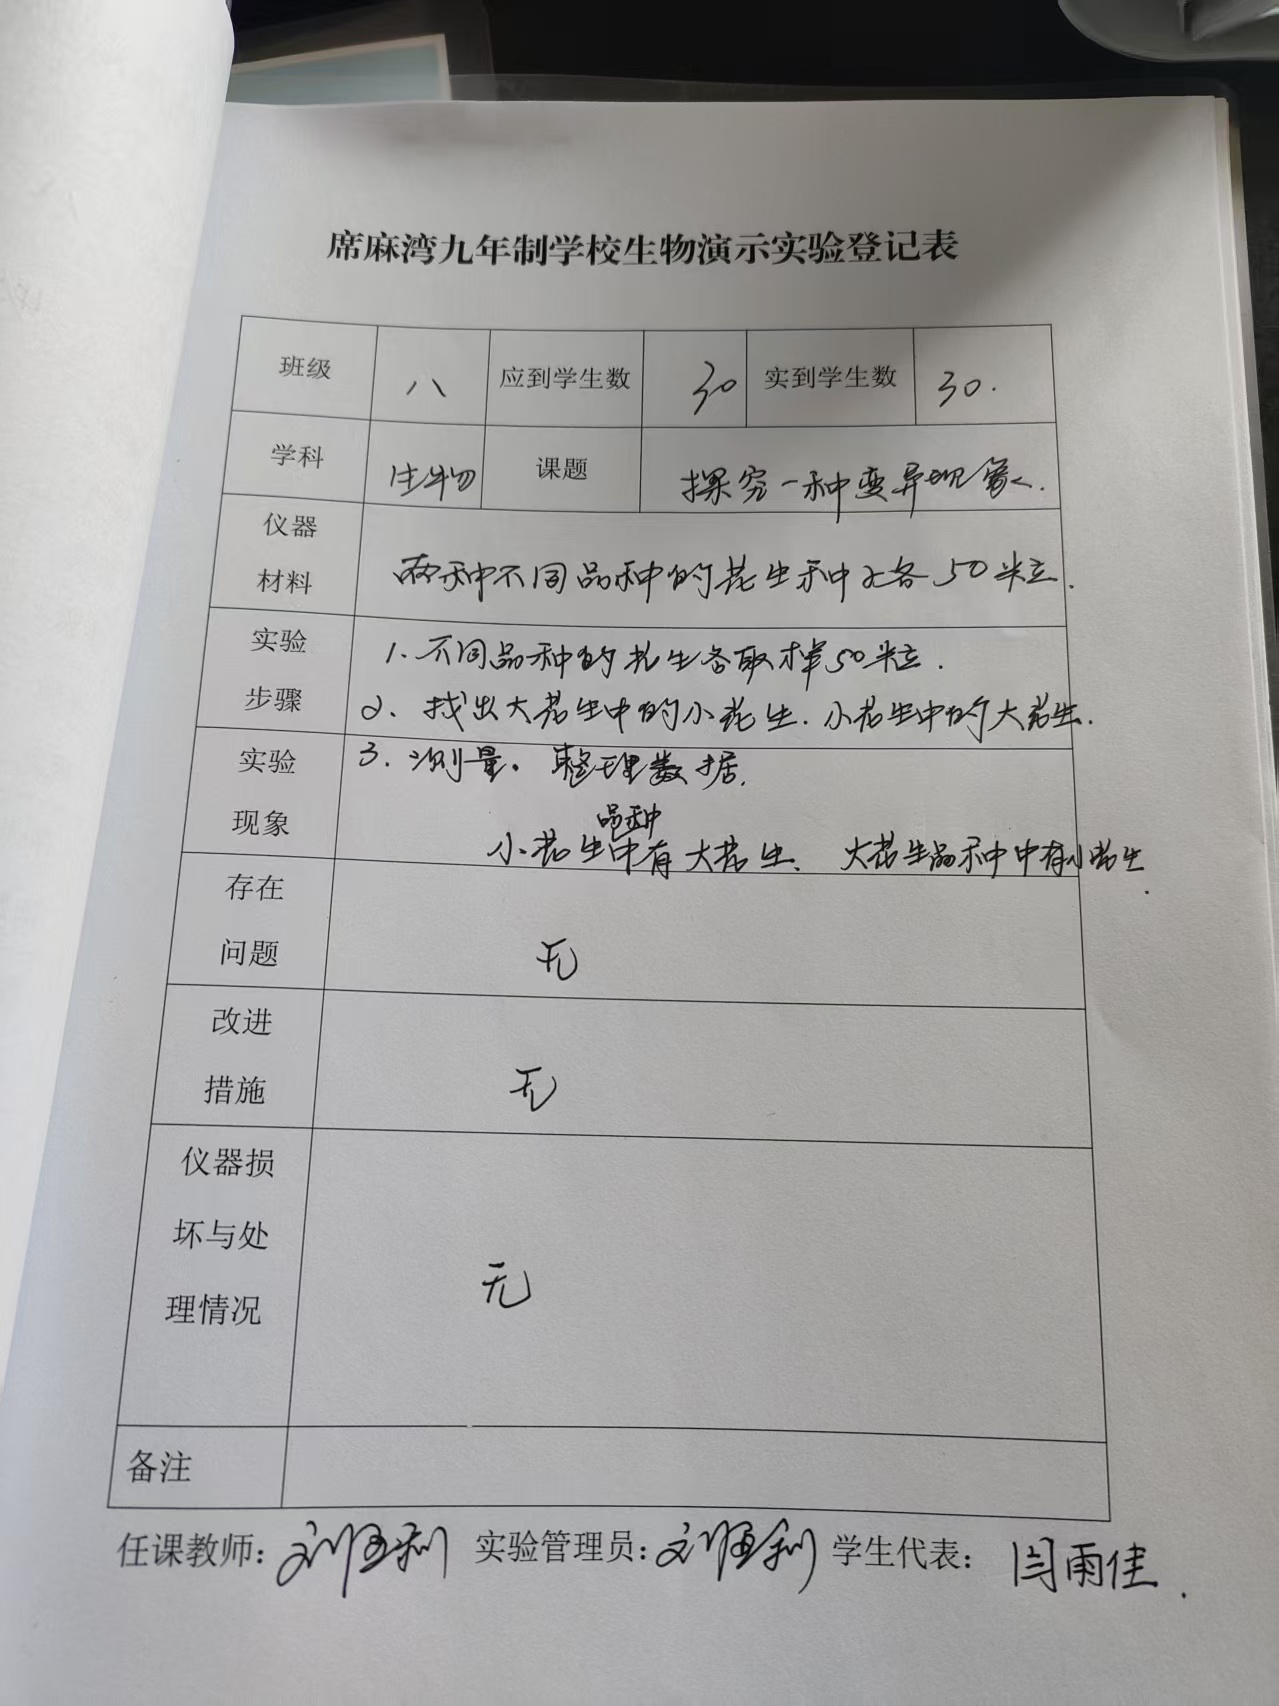 席麻湾九年制学校生物演示实验登记表
班级 八 应到学生数 30 实到学生数 30.
学科 生物 课题 探究一种变异现象.
仪器
材料
两种不同品种的花生种子各50粒.
实验
步骤
1、不同品种的花生各取样50粒.
2、找出大花生中的小花生.小花生中的大花生.
3.测量。整理数据.
实验
现象
品种
小花生中有大花生、大花生品种中有小花生.
存在
问题
无
改进
措施
无
仪器损
坏与处
理情况
无
备注
任课教师: 刘 利 实验管理员: 刘 利 学生代表: 闫雨佳.